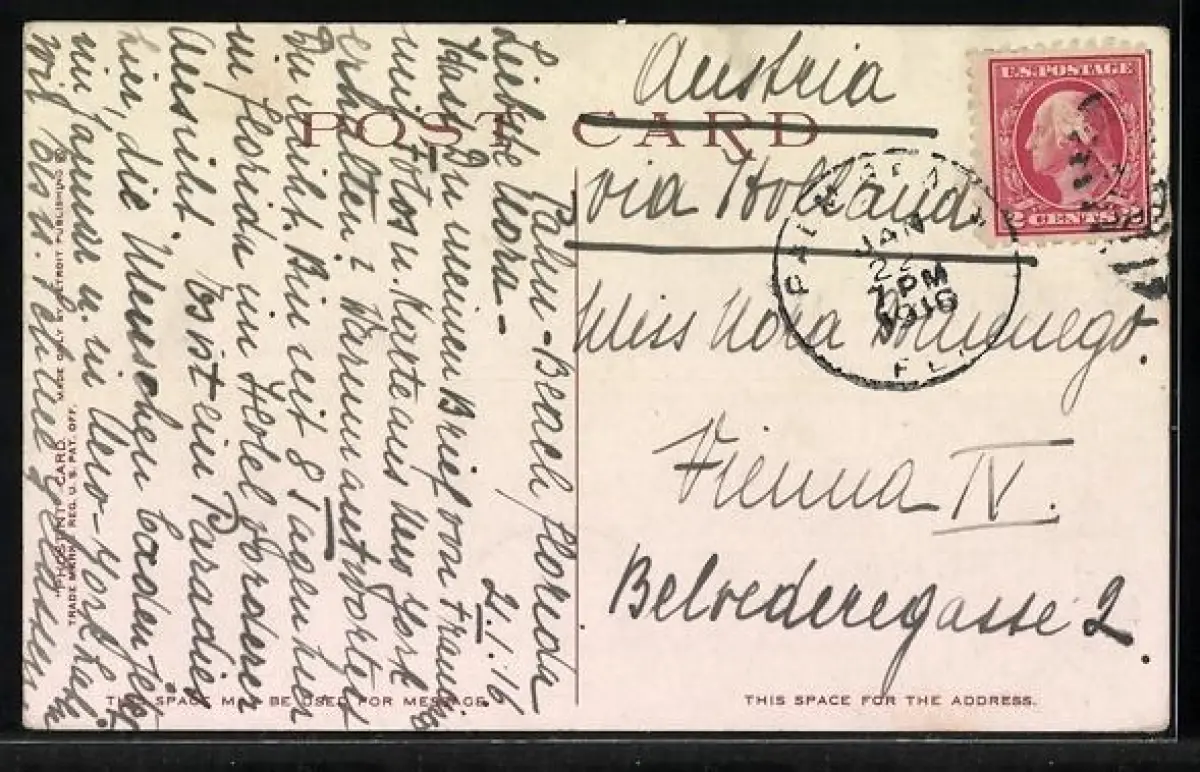 POST CARD
Austria
via Holland
Miss Nora
Vienna IV.
Belvederegasse 2.
U.S. POSTAGE
2 CENTS 2
PALM BEACH
JAN
22
7 PM
1916
FL
Palm-Beach Florida
21.1.16
Liebste Nora-
Hast Du meinen Brief von
mit Fotos u. Karte aus New York
erhalten? Warum antwortest
Du nicht. Bin seit 8 Tagen hier
in Florida im Hotel
Aussicht. Es ist ein Paradies
hier, die Menschen
mir u. in New-York hab
"PHOSTINT" CARD. MADE ONLY BY DETROIT PUBLISHING
TRADE MARK REG. U.S. PAT. OFF.
THIS SPACE MAY BE USED FOR MESSAGE.
THIS SPACE FOR THE ADDRESS.